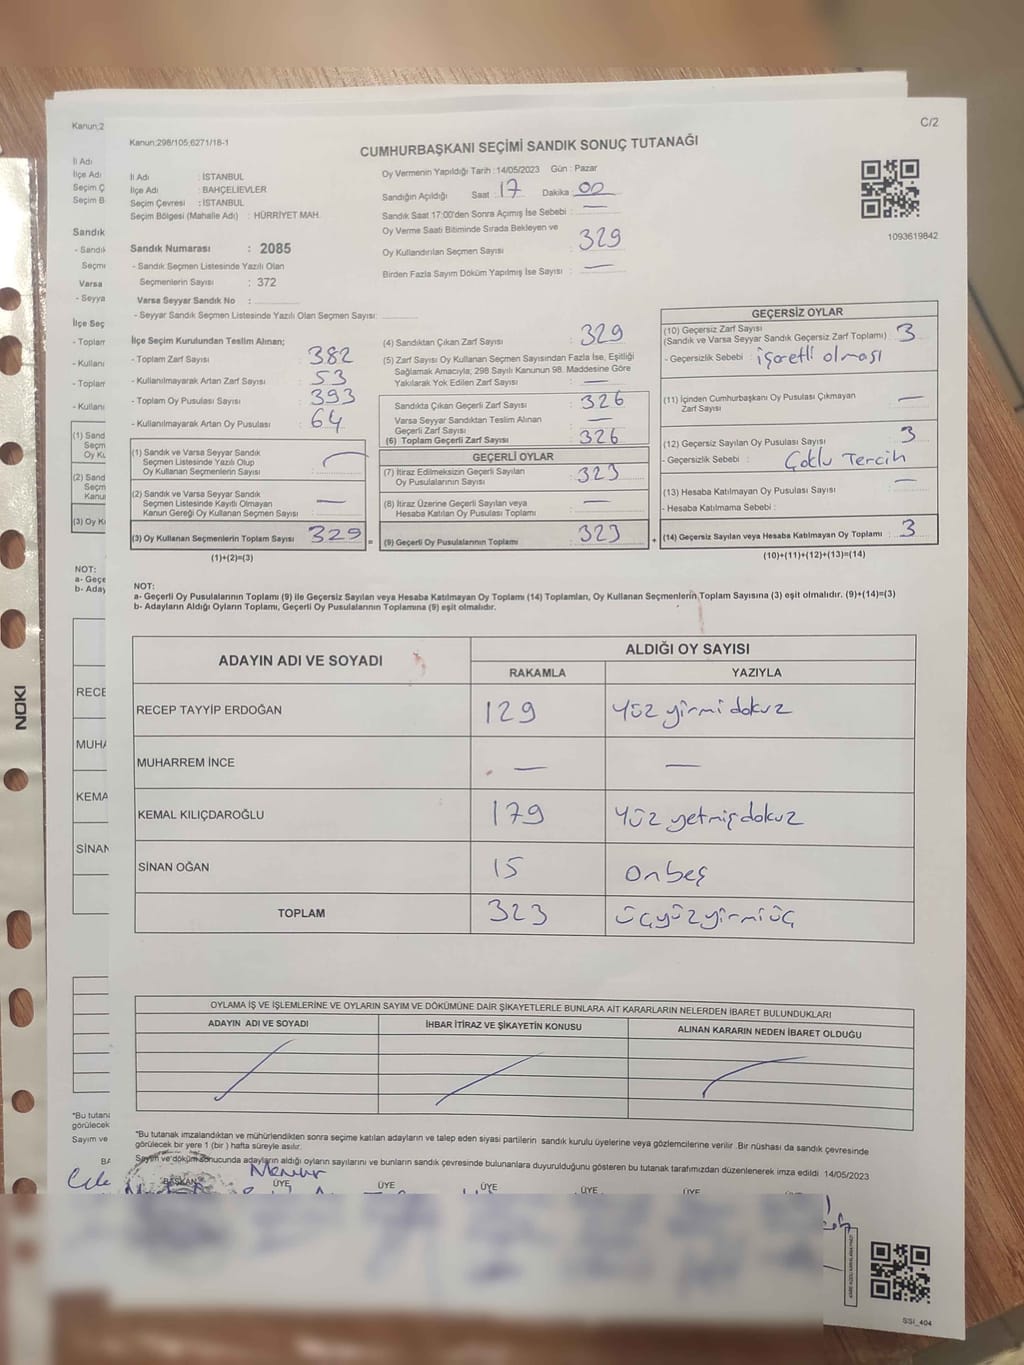 Kanun;2
İl Adı
İlçe Adı
Seçim Ç
Seçim B
Sandık
- Sandık
Seçme
Varsa
- Seyya
İlçe Seç
- Toplam
- Kullanı
- Toplam
- Kullanı
(1) Sand
Seçm
Oy Ku
(2) Sand
Seçm
Kanu
(3) Oy K
NOT:
a- Geçe
b- Aday
RECE
MUHA
KEMA
SİNAN
*Bu tutana
görülecek
Sayım ve
BA
NOKI
C/2
Kanun;298/105;6271/18-1
CUMHURBAŞKANI SEÇİMİ SANDIK SONUÇ TUTANAĞI
İl Adı : İSTANBUL
İlçe Adı : BAHÇELİEVLER
Seçim Çevresi : İSTANBUL
Seçim Bölgesi (Mahalle Adı) : HÜRRİYET MAH.
Sandık Numarası : 2085
- Sandık Seçmen Listesinde Yazılı Olan
Seçmenlerin Sayısı : 372
Varsa Seyyar Sandık No :
- Seyyar Sandık Seçmen Listesinde Yazılı Olan Seçmen Sayısı:
Oy Vermenin Yapıldığı Tarih :14/05/2023 Gün : Pazar
Sandığın Açıldığı Saat : 17 Dakika : 00
Sandık Saat 17:00'den Sonra Açımış İse Sebebi : —
Oy Verme Saati Bitiminde Sırada Bekleyen ve
Oy Kullandırılan Seçmen Sayısı : 329
Birden Fazla Sayım Döküm Yapılmış İse Sayısı : —
1093619842
İlçe Seçim Kurulundan Teslim Alınan;
- Toplam Zarf Sayısı : 382
- Kullanılmayarak Artan Zarf Sayısı : 53
- Toplam Oy Pusulası Sayısı : 393
- Kullanılmayarak Artan Oy Pusulası : 64
(1) Sandık ve Varsa Seyyar Sandık
Seçmen Listesinde Yazılı Olup
Oy Kullanan Seçmenlerin Sayısı :
(2) Sandık ve Varsa Seyyar Sandık
Seçmen Listesinde Kayıtlı Olmayan
Kanun Gereği Oy Kullanan Seçmen Sayısı : —
(3) Oy Kullanan Seçmenlerin Toplam Sayısı : 329
(1)+(2)=(3)
(4) Sandıktan Çıkan Zarf Sayısı : 329
(5) Zarf Sayısı Oy Kullanan Seçmen Sayısından Fazla İse, Eşitliği
Sağlamak Amacıyla; 298 Sayılı Kanunun 98. Maddesine Göre
Yakılarak Yok Edilen Zarf Sayısı : —
Sandıkta Çıkan Geçerli Zarf Sayısı : 326
Varsa Seyyar Sandıktan Teslim Alınan
Geçerli Zarf Sayısı : —
(6) Toplam Geçerli Zarf Sayısı : 326
GEÇERLİ OYLAR
(7) İtiraz Edilmeksizin Geçerli Sayılan
Oy Pusulalarının Sayısı : 323
(8) İtiraz Üzerine Geçerli Sayılan veya
Hesaba Katılan Oy Pusulası Toplamı : —
= (9) Geçerli Oy Pusulalarının Toplamı : 323
GEÇERSİZ OYLAR
(10) Geçersiz Zarf Sayısı
(Sandık ve Varsa Seyyar Sandık Geçersiz Zarf Toplamı) : 3
- Geçersizlik Sebebi : işaretli olması
(11) İçinden Cumhurbaşkanı Oy Pusulası Çıkmayan
Zarf Sayısı : —
(12) Geçersiz Sayılan Oy Pusulası Sayısı : 3
- Geçersizlik Sebebi : Çoklu Tercih
(13) Hesaba Katılmayan Oy Pusulası Sayısı : —
- Hesaba Katılmama Sebebi :
+ (14) Geçersiz Sayılan veya Hesaba Katılmayan Oy Toplamı : 3
(10)+(11)+(12)+(13)=(14)
NOT:
a- Geçerli Oy Pusulalarının Toplamı (9) ile Geçersiz Sayılan veya Hesaba Katılmayan Oy Toplamı (14) Toplamları, Oy Kullanan Seçmenlerin Toplam Sayısına (3) eşit olmalıdır. (9)+(14)=(3)
b- Adayların Aldığı Oyların Toplamı, Geçerli Oy Pusulalarının Toplamına (9) eşit olmalıdır.
ADAYIN ADI VE SOYADI ALDIĞI OY SAYISI
RAKAMLA YAZIYLA
RECEP TAYYİP ERDOĞAN 129 Yüz yirmi dokuz
MUHARREM İNCE — —
KEMAL KILIÇDAROĞLU 179 Yüz yetmiş dokuz
SİNAN OĞAN 15 onbeş
TOPLAM 323 üçyüzyirmiüç
OYLAMA İŞ VE İŞLEMLERİNE VE OYLARIN SAYIM VE DÖKÜMÜNE DAİR ŞİKAYETLERLE BUNLARA AİT KARARLARIN NELERDEN İBARET BULUNDUKLARI
ADAYIN ADI VE SOYADI İHBAR İTİRAZ VE ŞİKAYETİN KONUSU ALINAN KARARIN NEDEN İBARET OLDUĞU
*Bu tutanak imzalandıktan ve mühürlendikten sonra seçime katılan adayların ve talep eden siyasi partilerin sandık kurulu üyelerine veya gözlemcilerine verilir .Bir nüshası da sandık çevresinde
görülecek bir yere 1 (bir ) hafta süreyle asılır.
Sayım ve döküm sonucunda adayların aldığı oyların sayılarını ve bunların sandık çevresinde bulunanlara duyurulduğunu gösteren bu tutanak tarafımızdan düzenlenerek imza edildi 14/05/2023
BAŞKAN ÜYE ÜYE ÜYE ÜYE ÜYE ÜYE
SSİ_404